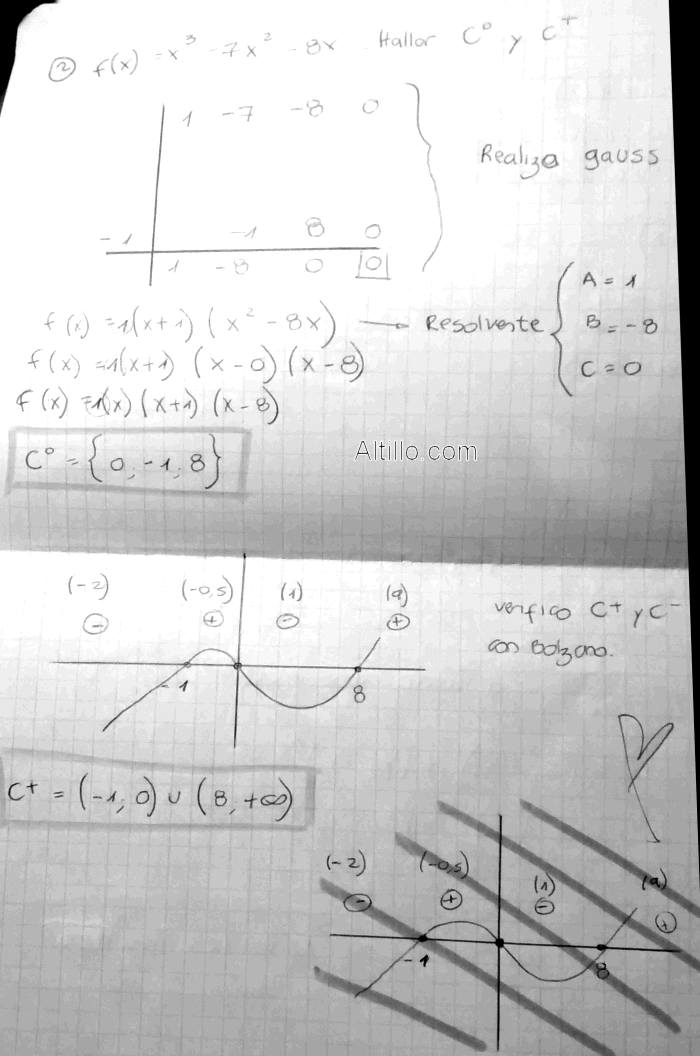 ② f(x) = x³ - 7x² - 8x. Hallar C⁰ y C⁺
1 -7 -8 0
Realiza gauss
-1 -1 8 0
1 -8 0 0
f(x) = 1(x+1) (x² - 8x) → Resolvente { A = 1
B = -8
C = 0
f(x) = 1(x+1) (x-0) (x-8)
f(x) = 1(x) (x+1) (x-8)
C⁰ = {0, -1, 8}
Altillo.com
(-2) (-0,5) (1) (9)
⊖ ⊕ ⊖ ⊕
verifico C⁺ y C⁻
con Bolzano.
-1 8
C⁺ = (-1, 0) ∪ (8, +∞)
(-2) (-0,5) (1) (9)
⊖ ⊕ ⊖ ⊕
-1 8